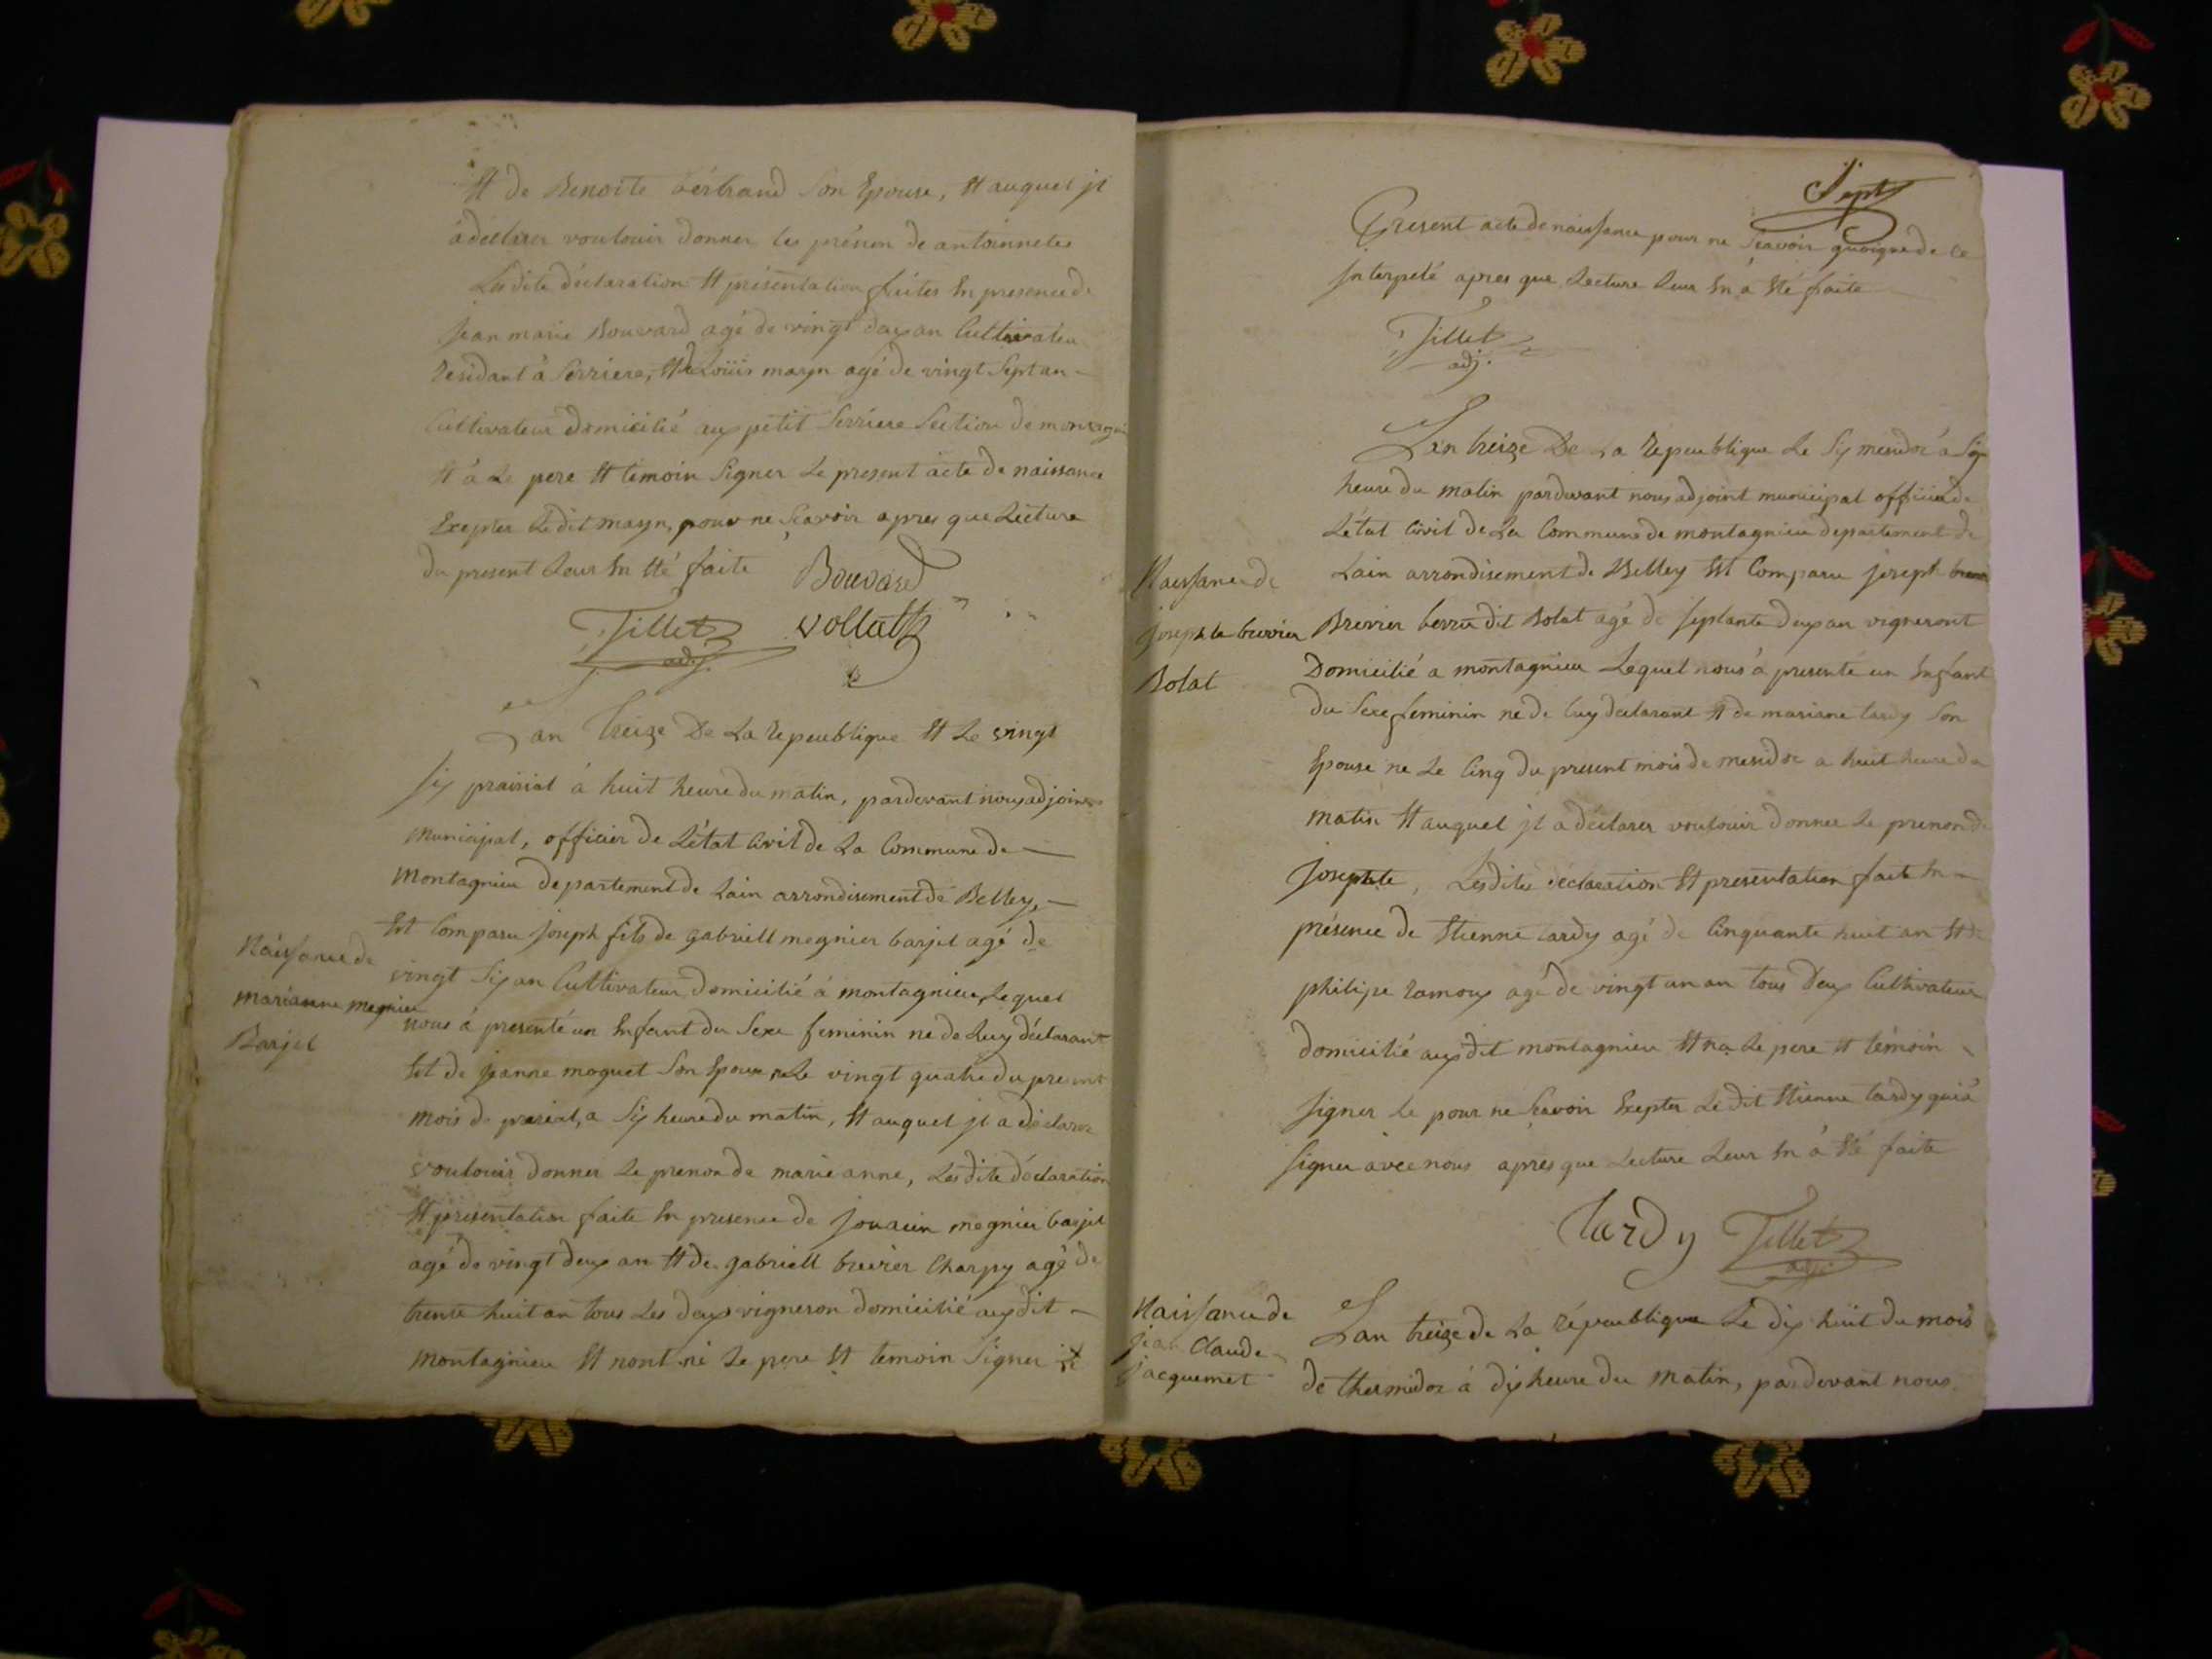 Et de Benoite bertrand Son Epouse, Et auquel jl
à déclarer voulouir donner les prénon de antoinnette
Lesdite déclaration Et présentation faites En presence de
jean marie Bouvard agé de vingt deux an Cultivateu
residant à Serriere, Et de Loüis mayn agé de vingt Sept an –
Cultivateur domicilié aux petit Serriere Section de montagni
Et à Le pere Et témoin Signer Le present acte de naissance
Exepter Ledit mayn, pour ne Scavoir apres que Lecture
du present Leur En Eté faite Bouvard
Tillet vollat
adj.
Lan treize De La repeublique Et Le vingt
six prairial à huit heure du matin, pardevant nous adjoint
municipal, officier de L'état Civil de La Commune de —
montagnieu departement de Lain arrondisement de Belley, —
Naissance de
marianne megnier
Barjel
Est Comparu joseph fils de gabriell megnier barjel agé de
vingt Six an Cultivateur domicilié à montagnieu, Lequel
nous à presenté un Enfant du Sexe feminin ne de Luy déclarant
Et de jeanne moquet Son Epouse, Le vingt quatre du present
mois de prerial, a Six heure du matin, Et auquel jl a déclarer
voulouir donner Le prenon de marie anne, Lesdite déclaration
Et présentation faite En presence de jouain megnier barjel
agé de vingt deux an Et de gabriell brevier Charpy agé de
trente huit an tous Les deux vigneron domicilié aux dit —
montagnieu Et nont ni Le pere Et temoin Signer Le
Sept
Present acte de naissance pour ne Scavoir quoique de ce
jnterpelé apres que Lecture Leur En à Eté faite
Tillet
adj.
Lan treize De La repeublique Le Six mesidor à Six
heure du matin pardevant nous adjoint municipal officier de
L'état Civil de La Commune de montagnieu departement de
Naissance de
josephte brevier
Bolat
Lain arrondisement de Belley Est Comparu joseph
Brevier berru dit Bolat agé de Septante deux an vigneront
Domicilié a montagnieu Lequel nous à presenté un Enfant
du Sexe feminin ne de Luy declarant Et de mariane tardy Son
Epouse ne Le Cinq du present mois de mesidor a huit heure du
matin Et auquel jl a déclarer voulouir donner Le prenon de
josephte, Lesdites declaration Et presentation faite En —
présence de Etienne tardy agé de Cinquante huit an Et de
philipe ramoux agé de vingt un an tous deux Cultivateur
domicilié aux dit montagnieu Et na Le pere Et témoin
signer Le pour ne Scavoir Exepter Le dit Etienne tardy qui à
signer avec nous apres que Lecture Leur En à Eté faite
Tardy Tillet
adj.
Naissance de
jean Claude
jacquemet
Lan treize de La république Le dix huit du mois
de thermidor à dix heure du matin, pardevant nous